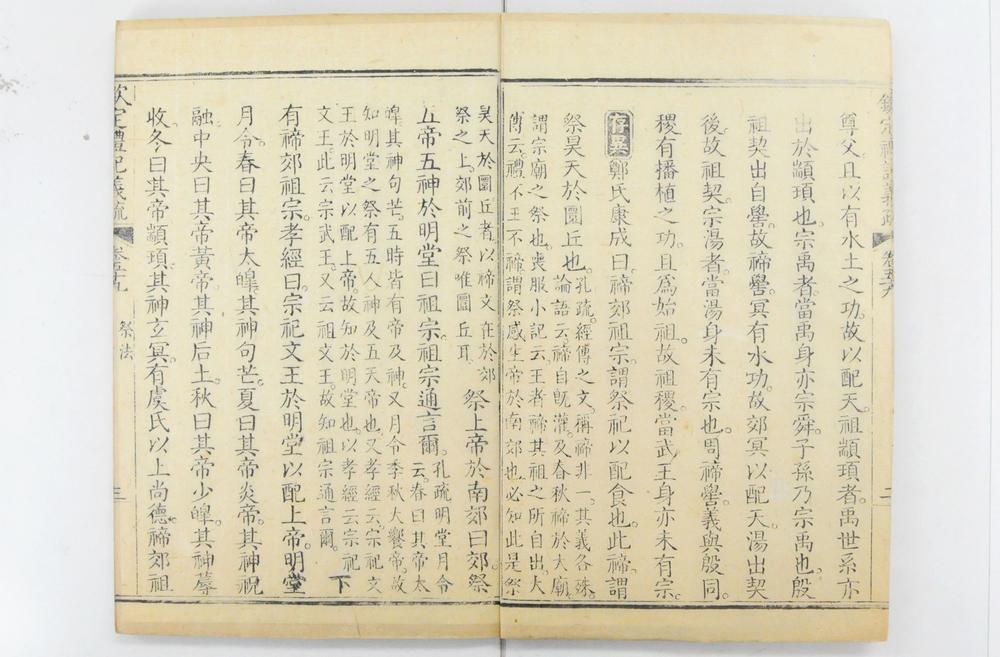 尊父。且以有水土之功。故以配天。祖顓頊者。禹世系亦
出於顓頊也。宗禹者。當禹身亦宗舜。子孫乃宗禹也。殷
祖契出自嚳。故禘嚳。冥有水功。故郊冥以配天。湯出契
後。故祖契。宗湯者。當湯身未有宗也。周禘嚳。義與殷同。
稷有播植之功。且爲始祖。故祖稷。當武王身亦未有宗。
存異鄭氏康成曰。禘郊祖宗。謂祭祀以配食也。此禘謂
祭昊天於圜丘也。
孔疏。經傳之文。稱禘非一。其義各殊。
論語云。禘自旣灌。及春秋禘於大廟。
謂宗廟之祭也。喪服小記云。王者禘其祖之所自出。大
傳云。禮不王不禘。謂祭感生帝於南郊也。必知此是祭
昊天於圜丘者。以禘文在於郊
祭之上。郊前之祭。唯圜丘耳。
祭上帝於南郊曰郊。祭
五帝五神於明堂曰祖宗。祖宗通言爾。
孔疏明堂月令
云。春曰其帝太
皥。其神句芒。五時皆有帝及神。又月令季秋大饗帝。故
知明堂之祭。有五人神及五天帝也。又孝經云。宗祀文
王於明堂。以配上帝。故知於明堂也。以孝經云宗祀
文王。此云宗武王。又云祖文王。故知祖宗通言爾。
下
有禘郊祖宗。孝經曰。宗祀文王於明堂以配上帝。明堂
月令。春曰其帝太皥。其神句芒。夏曰其帝炎帝。其神祝
融。中央曰其帝黃帝。其神后土。秋曰其帝少皥。其神蓐
收。冬曰其帝顓頊。其神玄冥。有虞氏以上尚德。禘郊祖
欽定禮記義疏
卷五十九
祭法
三